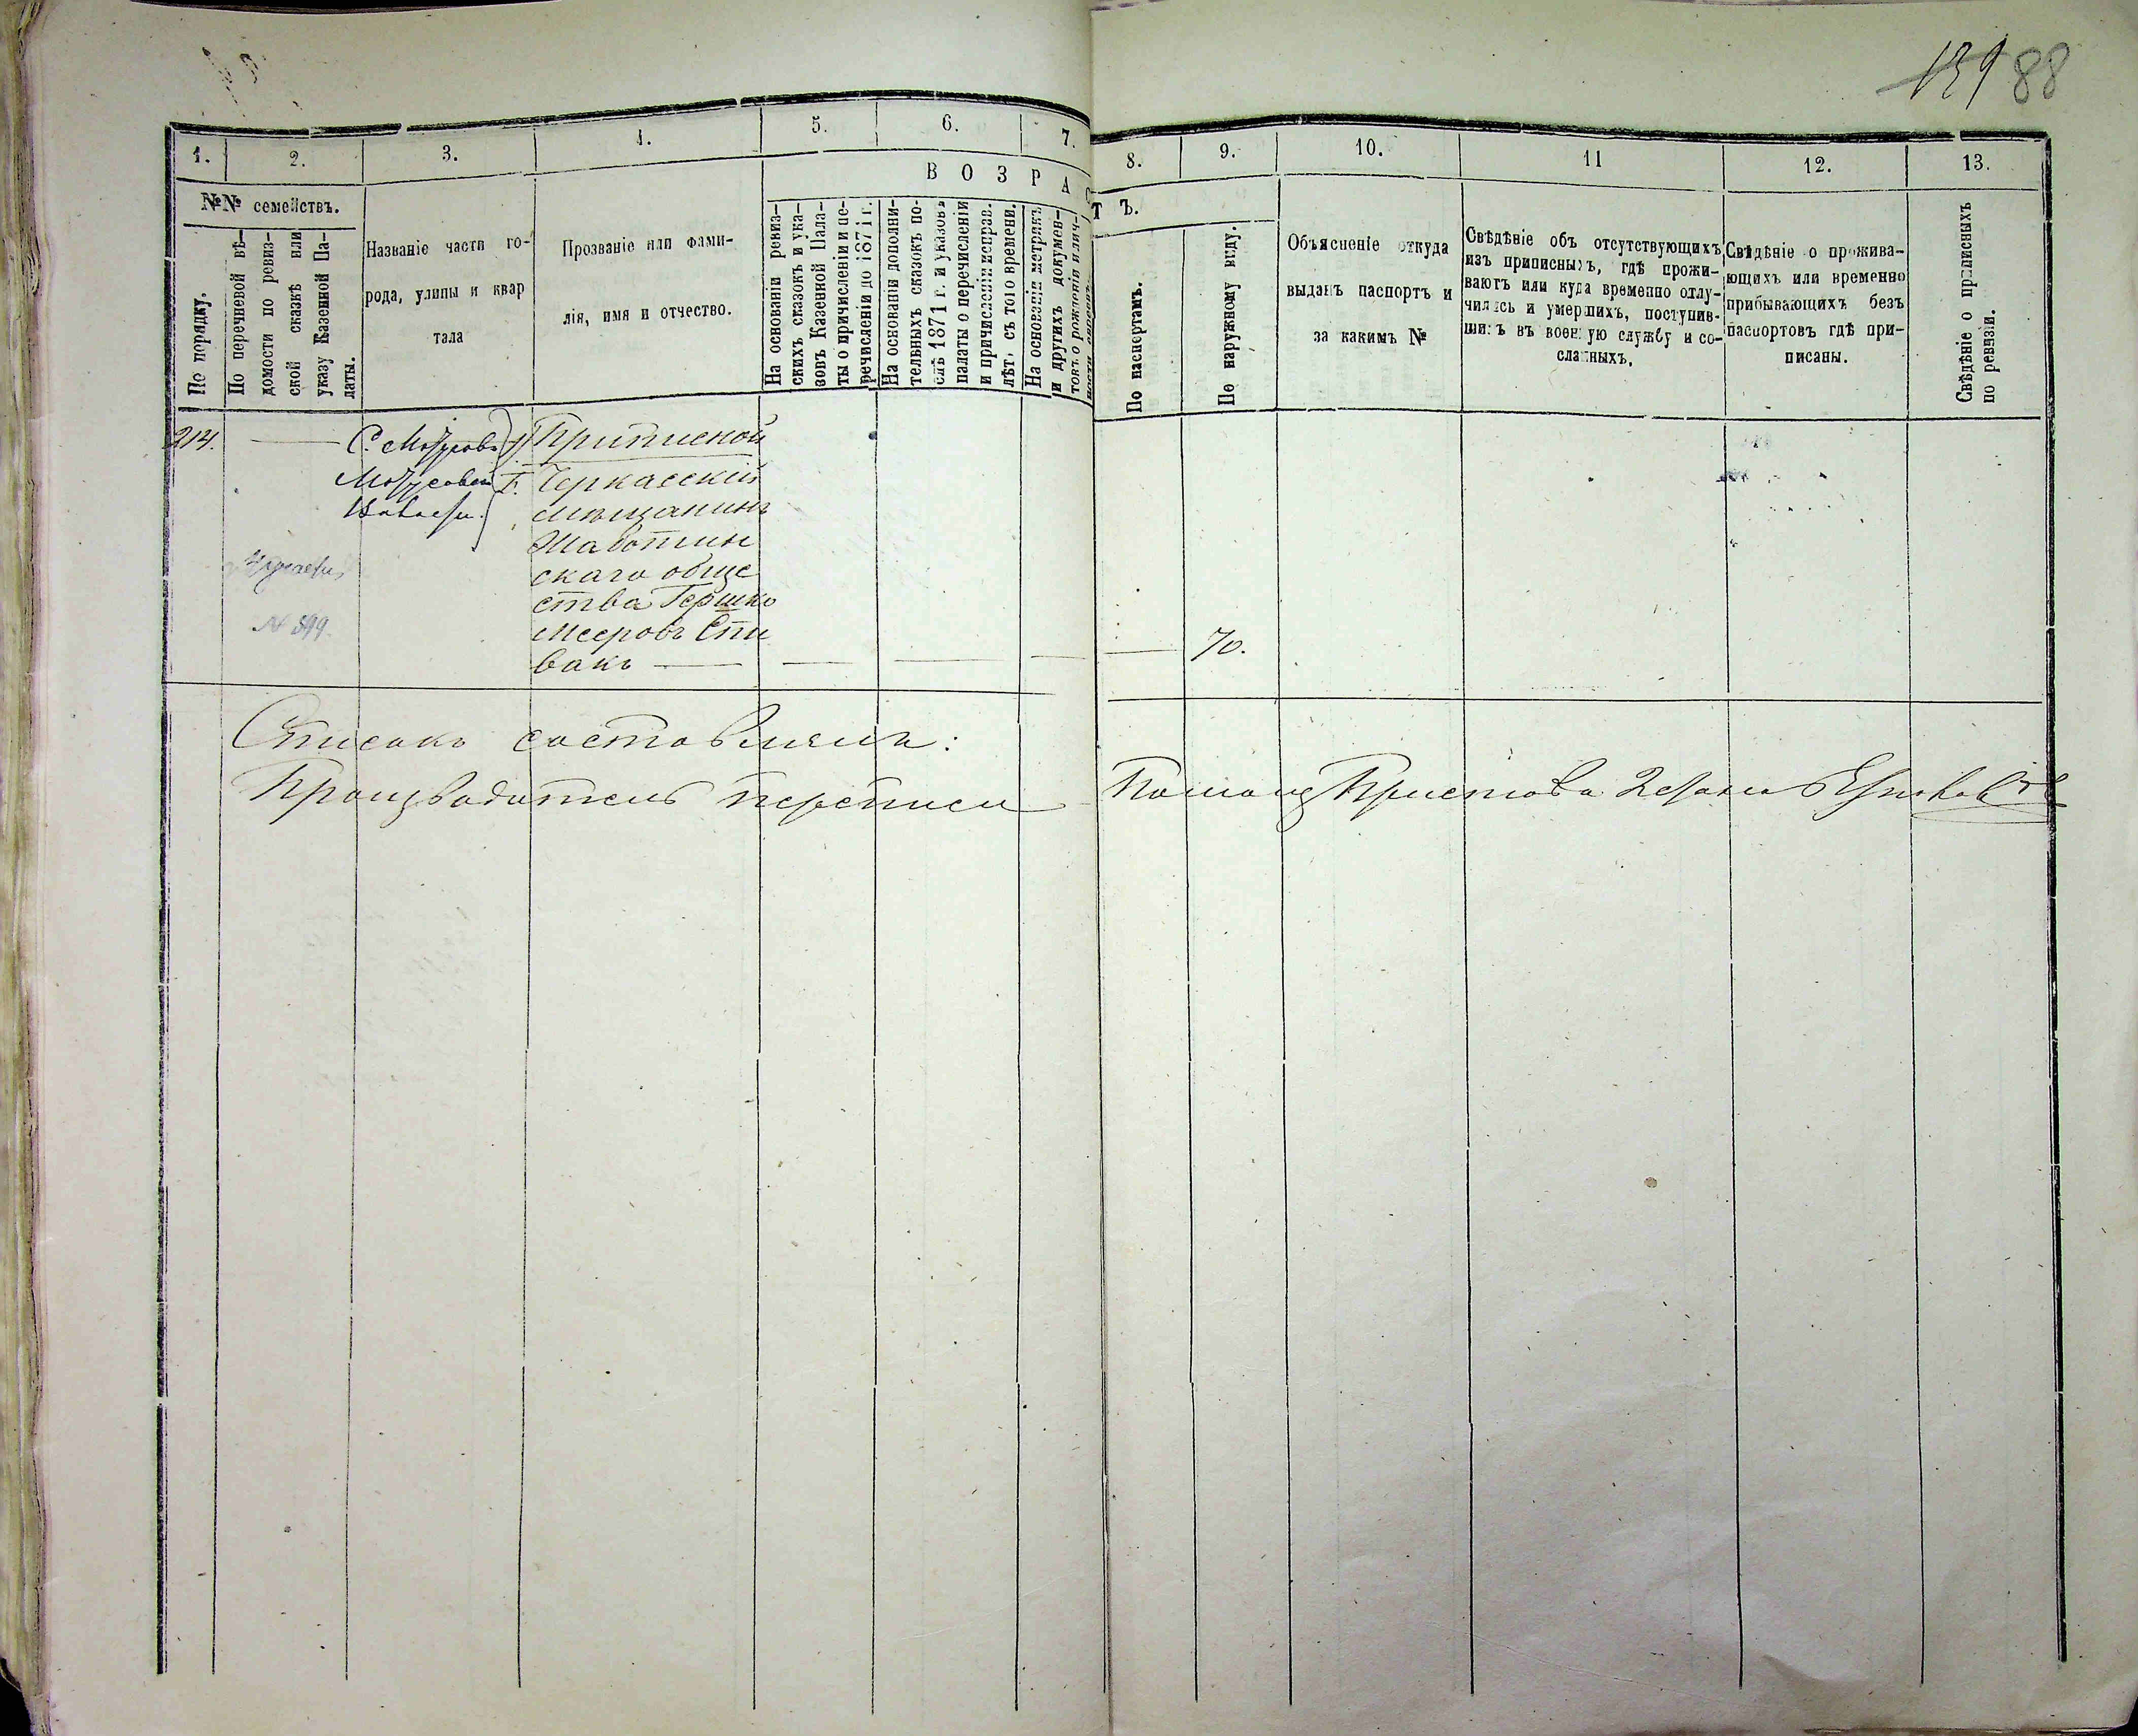 139 88
1. 2. 3. 4. 5. 6. 7. 8. 9. 10. 11 12. 13.
ВОЗРАСТЪ.
№№ семействъ.
По порядку.
По перечневой вѣ-
домости по ревиз-
ской сказкѣ или
указу Казенной Па-
латы.
Названіе части го-
рода, улицы и квар
тала
Прозваніе или фами-
лія, имя и отчество.
На основаніи ревиз-
скихъ сказокъ и ука-
зовъ Казенной Пала-
ты о причисленіи и пе-
речисленіи до 1871 г.
На основаніи дополни-
тельныхъ сказокъ по-
слѣ 1871 г. и указовъ
палаты о перечисленіи
и причисленіи исправ.
лѣтъ съ того времени.
На основаніи метрикъ
и другихъ докумен-
товъ о рожденіи и лич-
По паспортамъ.
По наружному виду.
Объясненіе откуда
выданъ паспортъ и
за какимъ №
Свѣдѣніе объ отсутствующихъ
изъ приписныхъ, гдѣ прожи-
ваютъ или куда временно отлу-
чились и умершихъ, поступив-
шихъ въ военную службу и со-
сланныхъ.
Свѣдѣніе о прожива-
ющихъ или временно
прибывающихъ безъ
паспортовъ гдѣ при-
писаны.
Свѣдѣніе о приписныхъ
по ревизіи.
214.
Приписной
Черкасскій
мѣщанинъ
Жаботин
скаго обще
ства Гершко
Мееровъ Спи
вакъ
70.
№ 599.
Списокъ составлялъ:
Производитель переписи Помощ Пристава